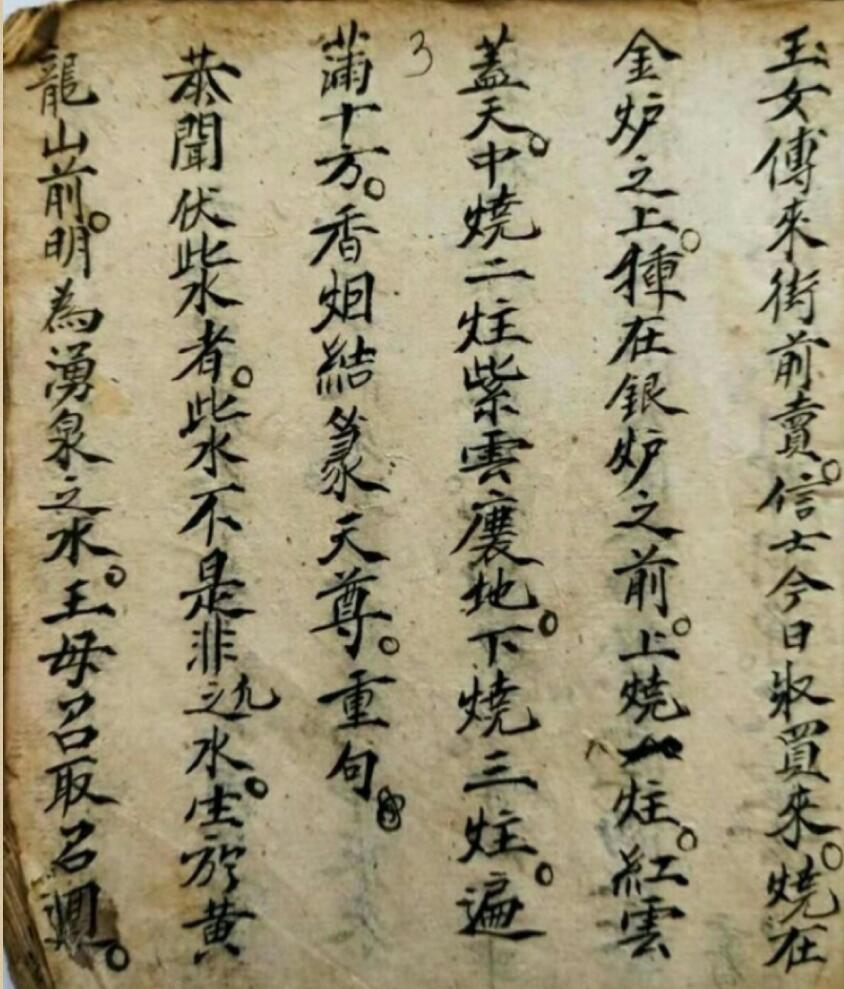 玉女傳來街前賣。信士今日收買來。燒在
金炉之上。插在銀炉之前。上燒一炷。紅雲
蓋天。中燒二炷紫雲裹地。下燒三炷。遍
蒲十方。香烟結篆天尊。重句
3
恭聞伏此水者。此水不是非凡之水。生於黄
龍山前。明為湧泉之水。王母召取召